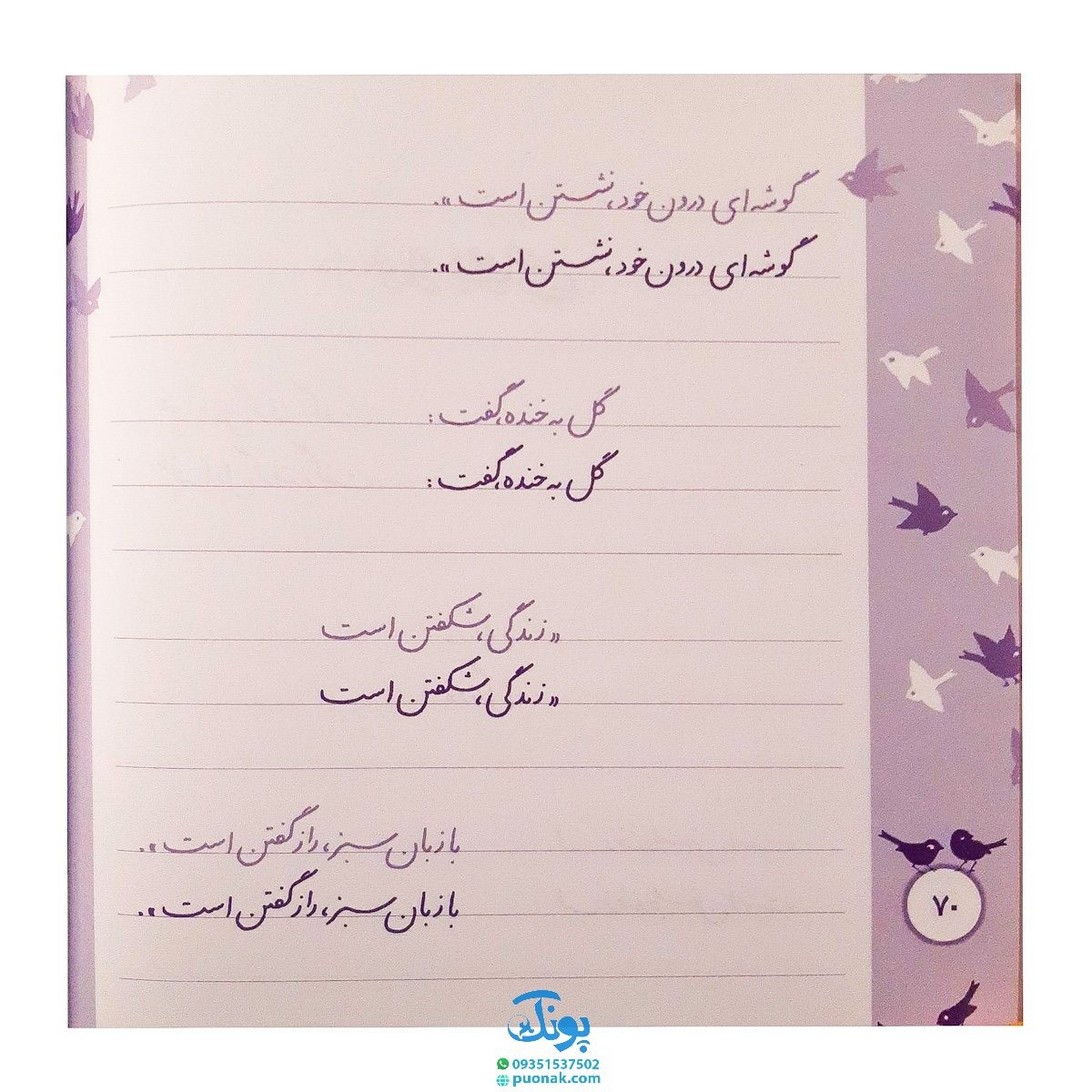 گوشه‌ای درون خود، نشستن است».
گوشه‌ای درون خود، نشستن است».
گل به خنده، گفت:
گل به خنده، گفت:
«زندگی، شکفتن است
«زندگی، شکفتن است
با زبان سبز، راز گفتن است».
با زبان سبز، راز گفتن است».
۷۰
پونک
09351537502
puonak.com